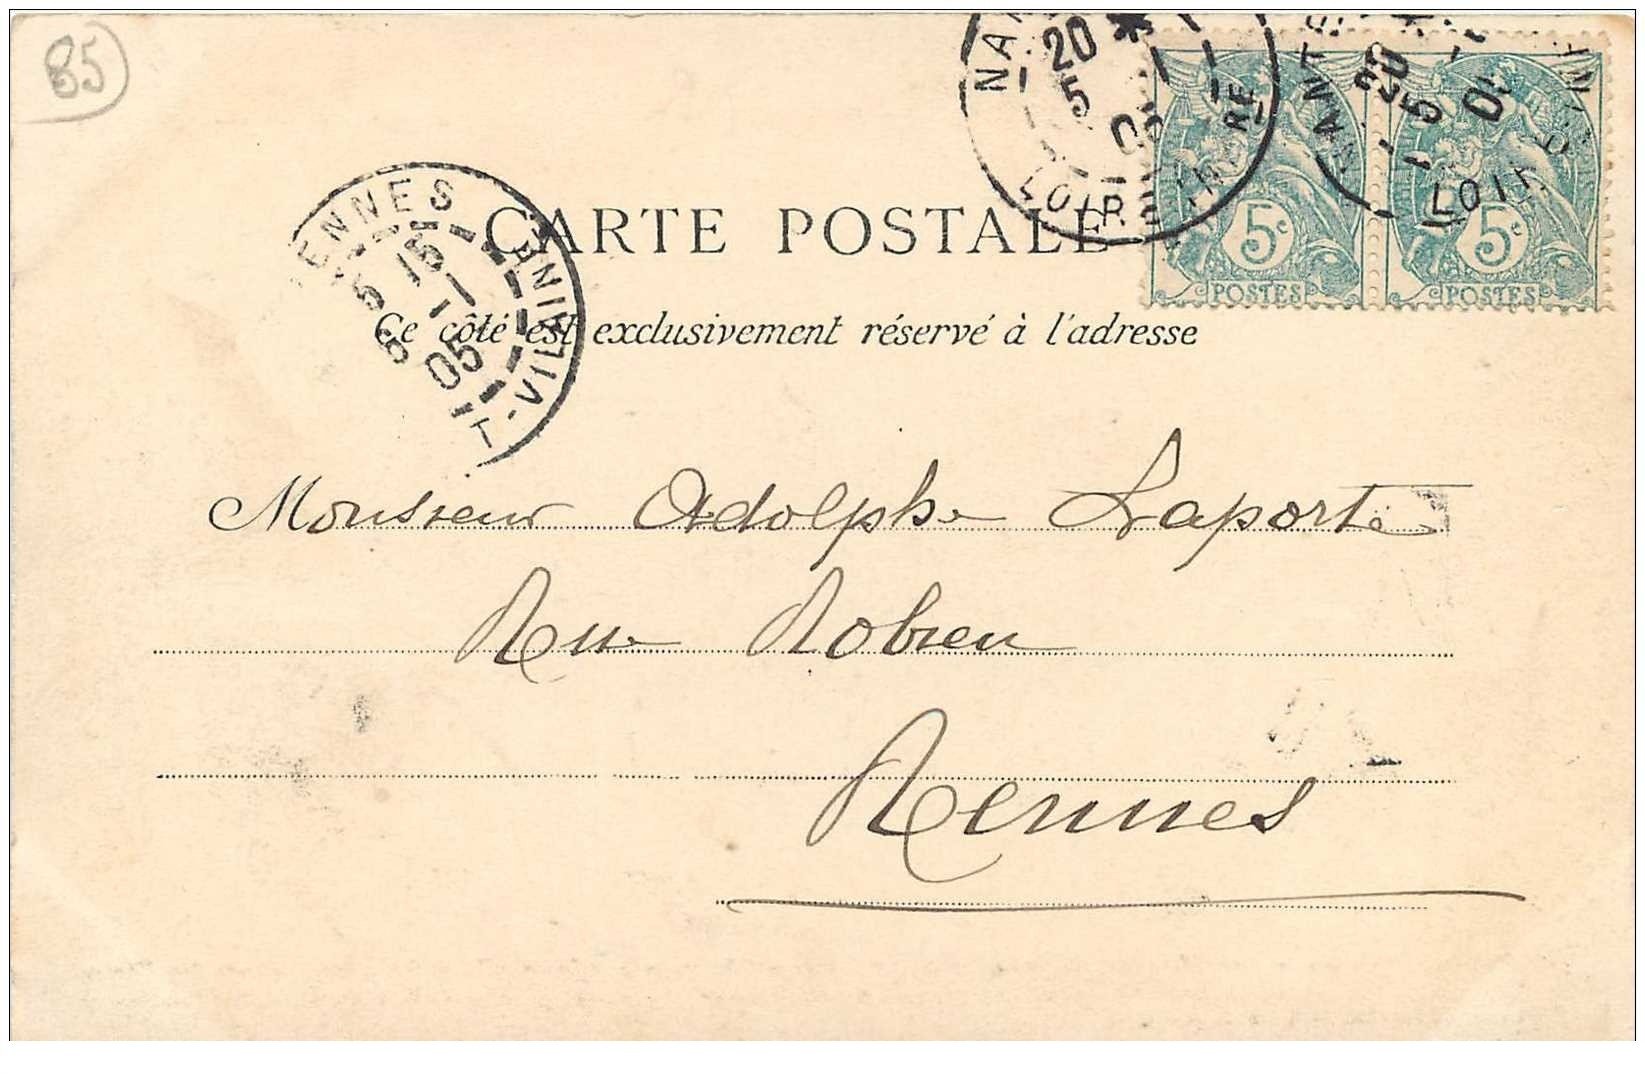 85
NANTES
20 *
5 - 1
05
LOIRE INFRE
NANTES
20
5 - 1
05
LOIRE INF
5c 5c
POSTES POSTES
RENNES
5 15
6 - 1
05
ET-VILAINE
CARTE POSTALE
Ce côté est exclusivement réservé à l'adresse
Monsieur Adolphe Laporte
Rue Robien
Rennes